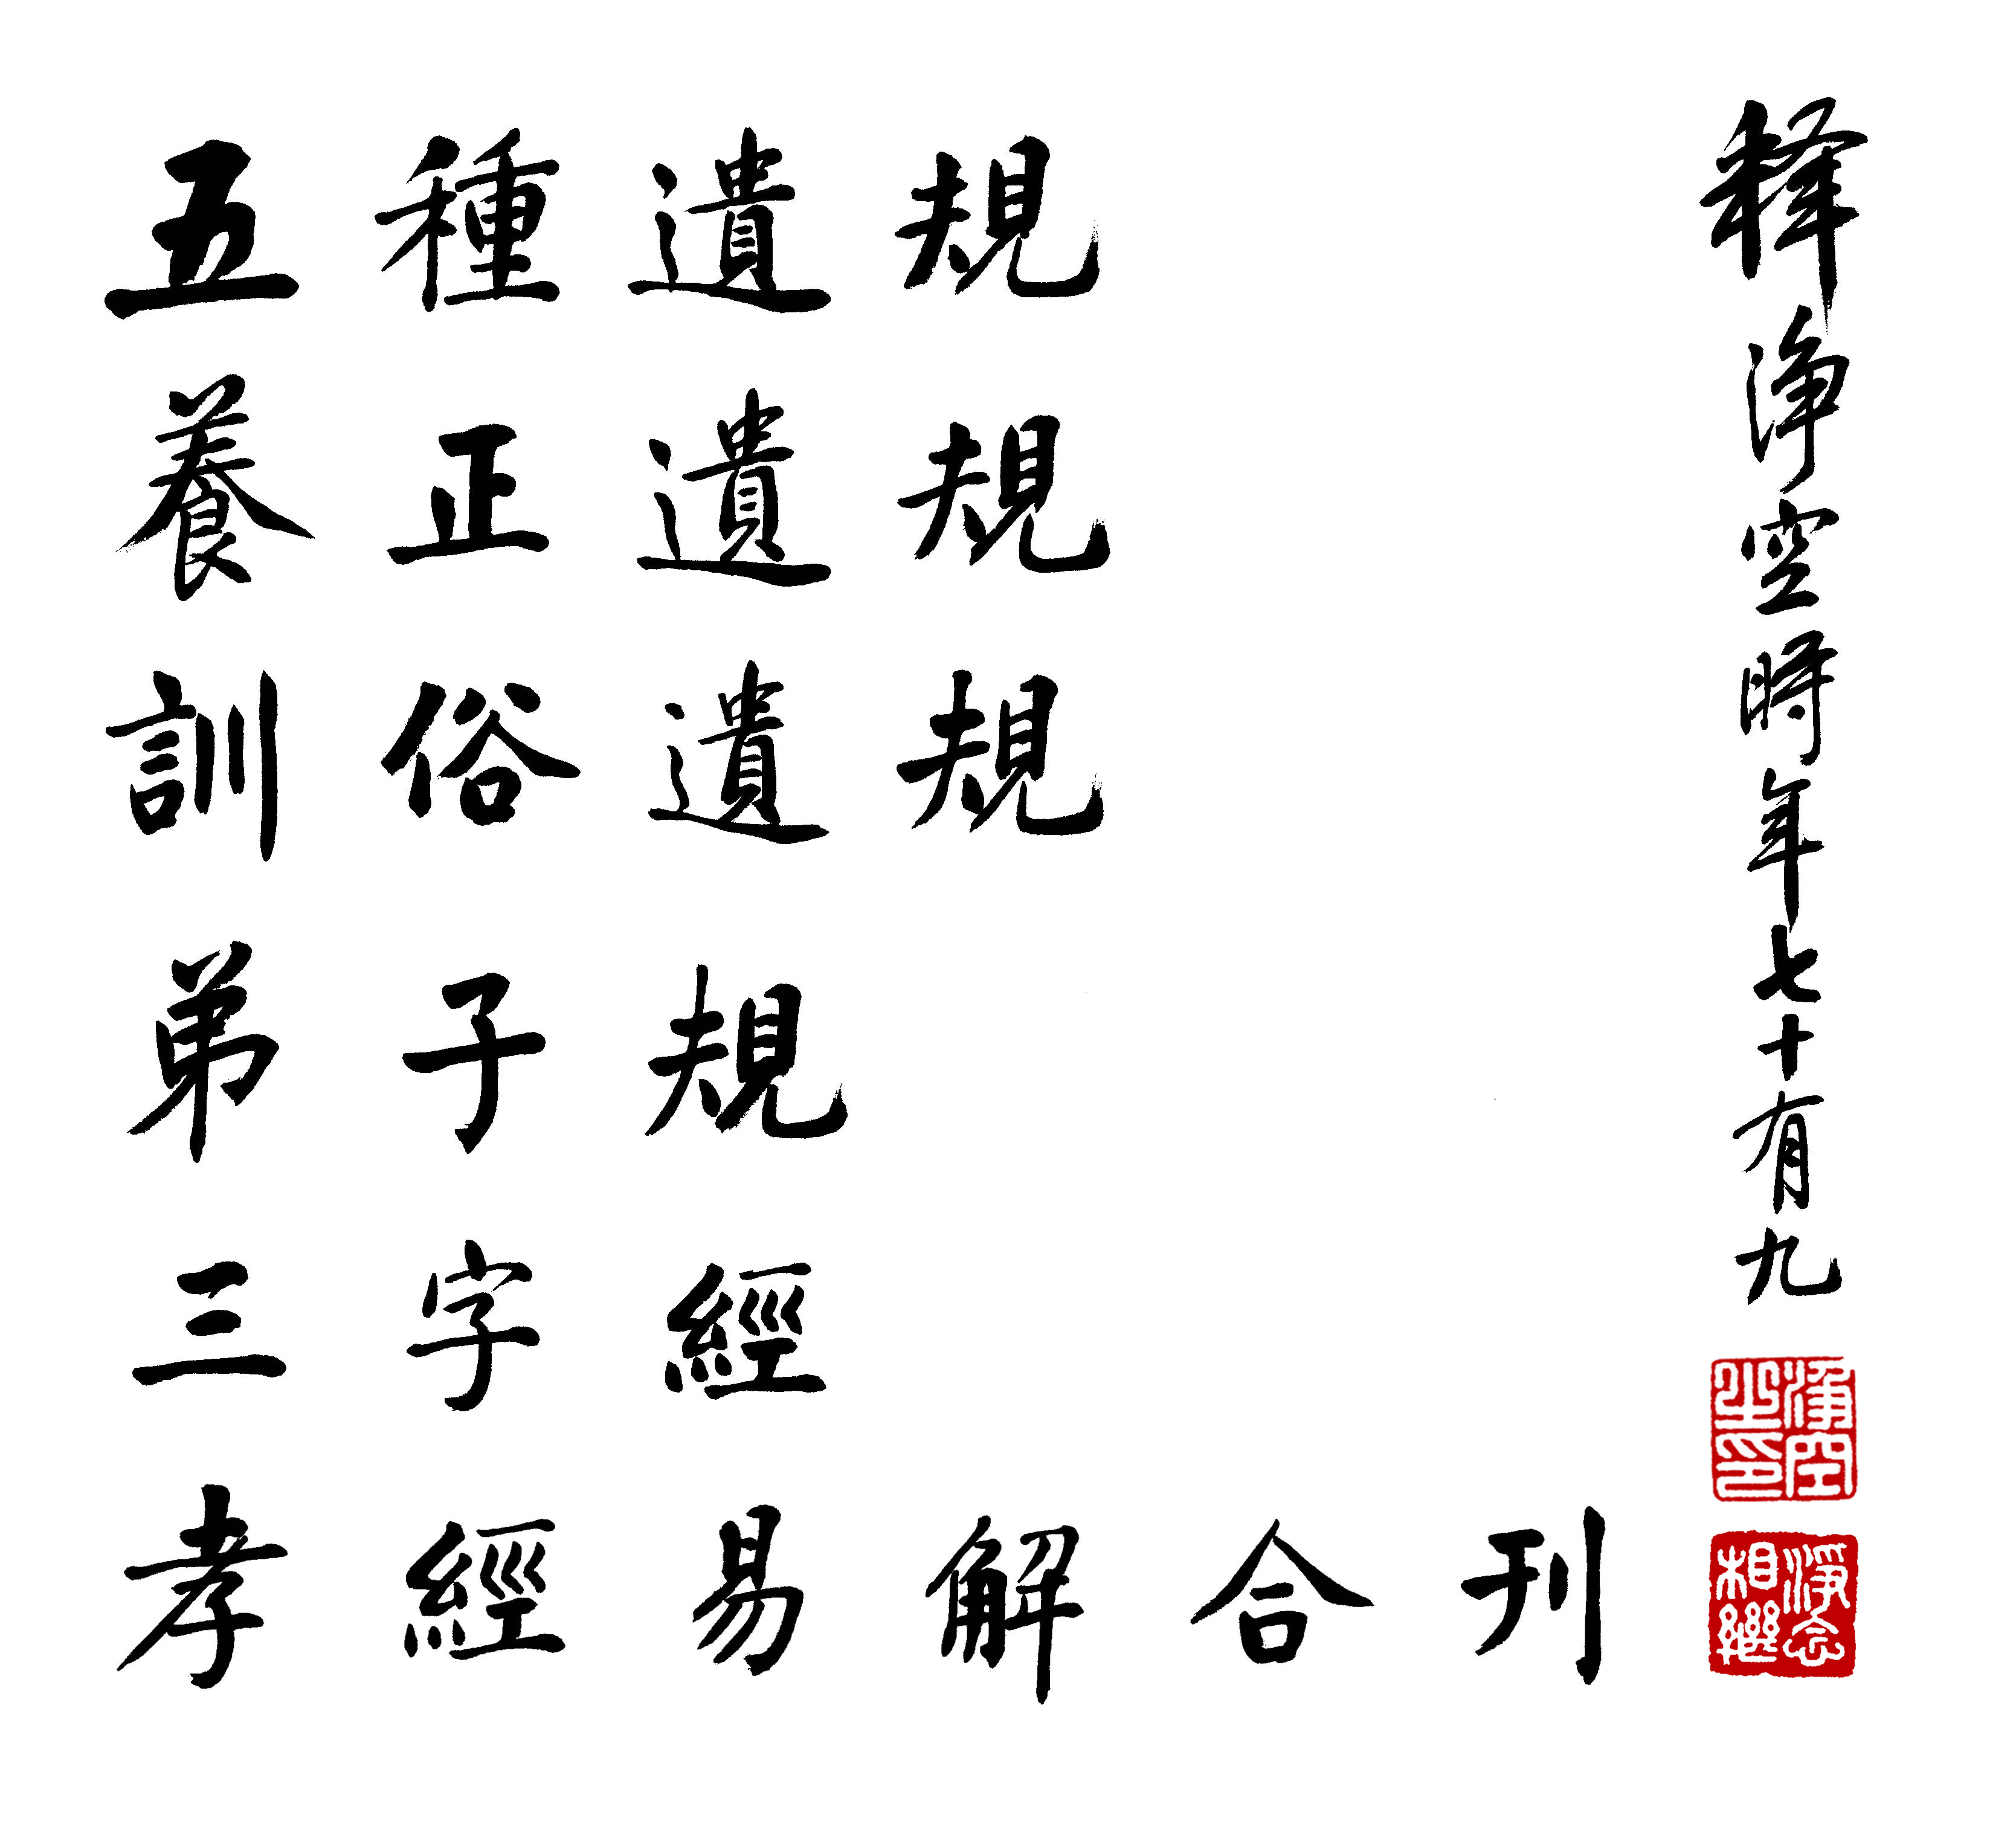 五種遺規
養正遺規
訓俗遺規
弟子規
三字經
孝經易解合刊
释淨空時年七十有九
淨空之印
淨念相繼